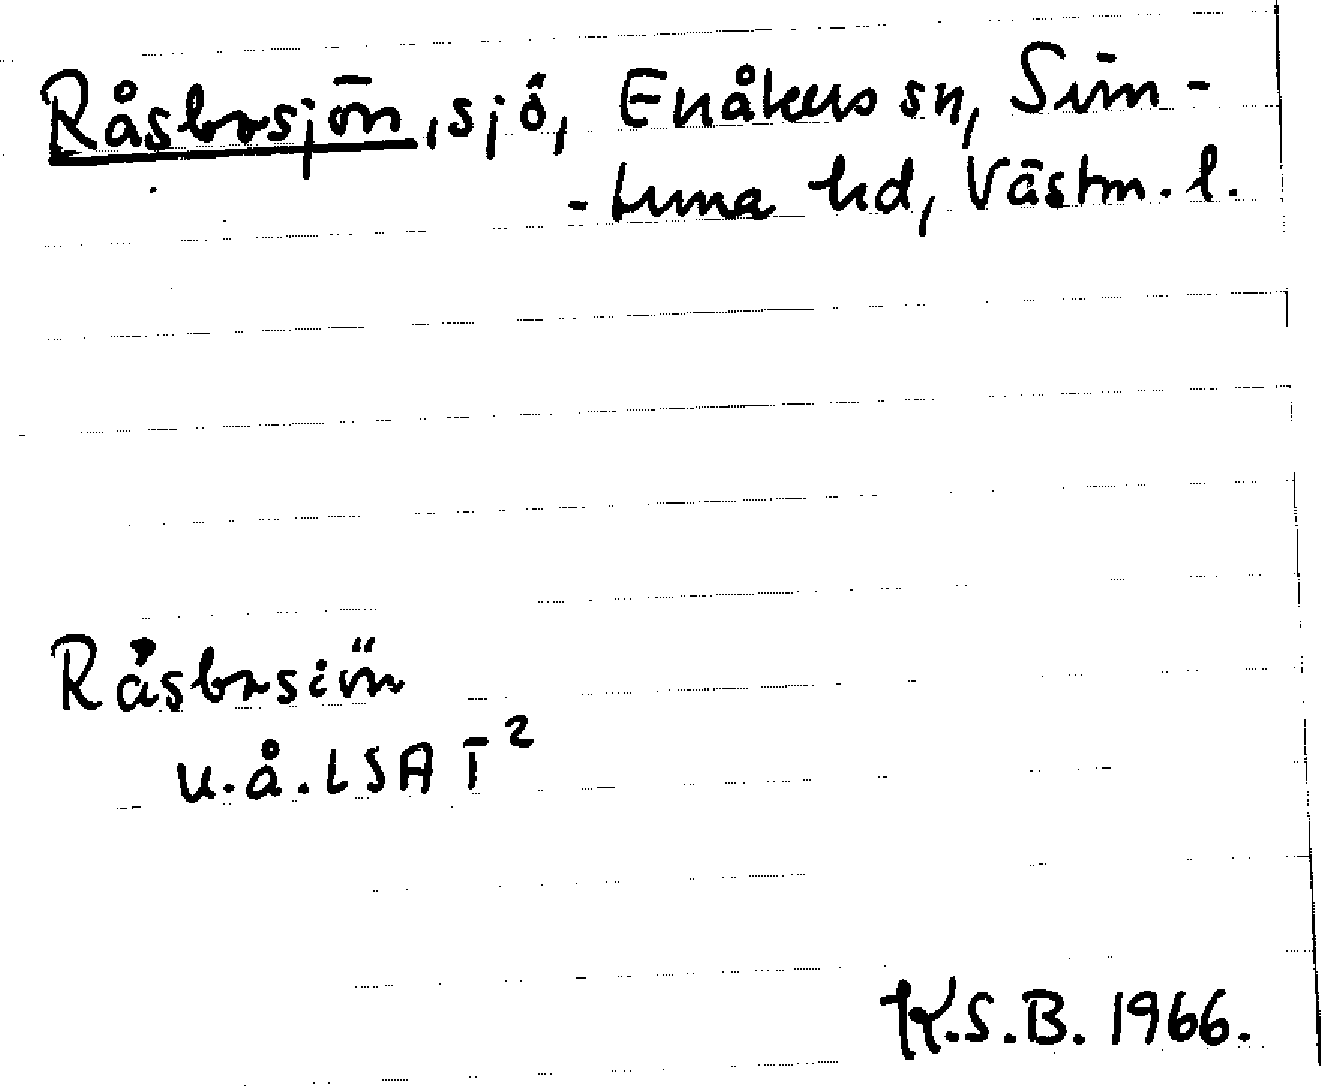 Råsbosjön, sjö, Enåkers sn, Sim-
-tuna hd, Västm. l.
Råsbosiön
u.å. LSA T²
K.S.B. 1966.